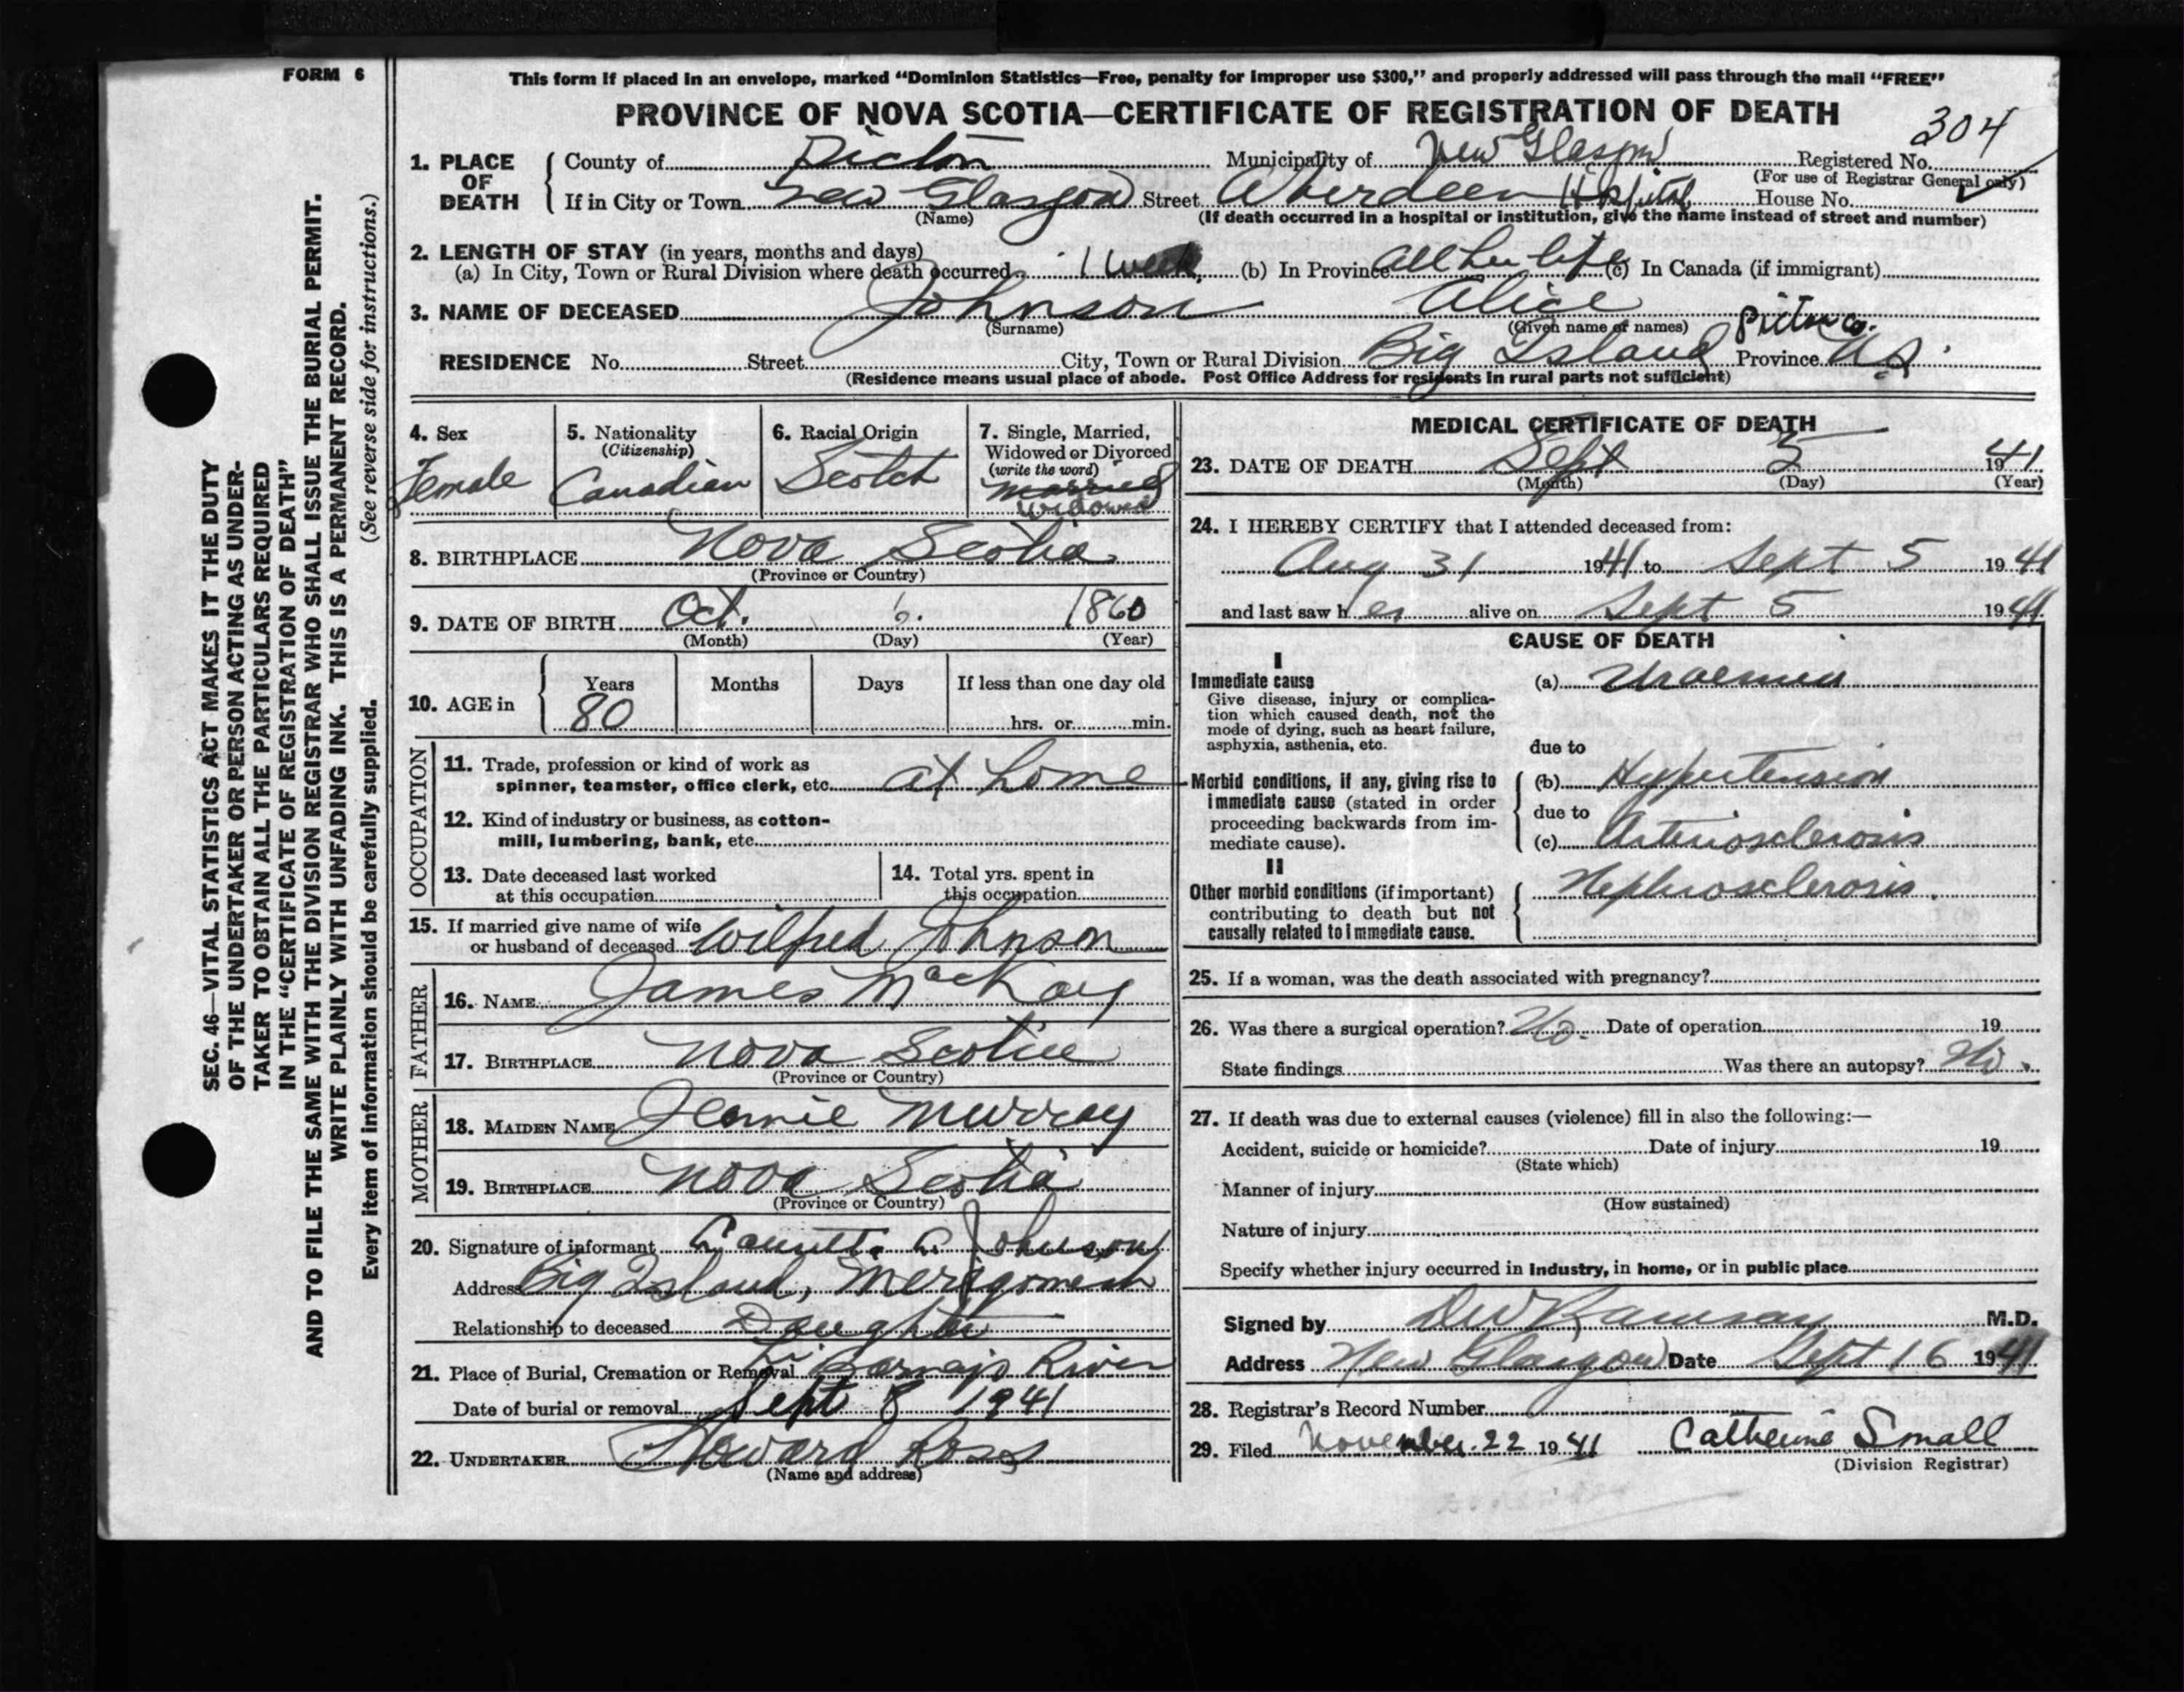 FORM 6
This form if placed in an envelope, marked “Dominion Statistics—Free, penalty for improper use $300,” and properly addressed will pass through the mail “FREE”
PROVINCE OF NOVA SCOTIA—CERTIFICATE OF REGISTRATION OF DEATH
304
1. PLACE OF DEATH
County of Pictou Municipality of New Glasgow Registered No.
(For use of Registrar General only)
If in City or Town New Glasgow Street Aberdeen Hospital House No.
(Name) (If death occurred in a hospital or institution, give the name instead of street and number)
2. LENGTH OF STAY (in years, months and days)
(a) In City, Town or Rural Division where death occurred 1 week (b) In Province all her life (c) In Canada (if immigrant)
3. NAME OF DECEASED Johnson Alice
(Surname) (Given name or names)
Pictou Co.
RESIDENCE No. Street City, Town or Rural Division Big Island Province N.S.
(Residence means usual place of abode. Post Office Address for residents in rural parts not sufficient)
4. Sex
Female
5. Nationality
(Citizenship)
Canadian
6. Racial Origin
Scotch
7. Single, Married,
Widowed or Divorced
(write the word)
married
Widowed
8. BIRTHPLACE Nova Scotia
(Province or Country)
9. DATE OF BIRTH Oct. 6. 1860
(Month) (Day) (Year)
10. AGE in
Years Months Days If less than one day old
80 hrs. or min.
OCCUPATION
11. Trade, profession or kind of work as
spinner, teamster, office clerk, etc. at home
12. Kind of industry or business, as cotton-
mill, lumbering, bank, etc.
13. Date deceased last worked
at this occupation
14. Total yrs. spent in
this occupation
15. If married give name of wife
or husband of deceased Wilfred Johnson
FATHER
16. NAME James MacKay
17. BIRTHPLACE Nova Scotia
(Province or Country)
MOTHER
18. MAIDEN NAME Jennie Murray
19. BIRTHPLACE Nova Scotia
(Province or Country)
20. Signature of informant Johnson
Address Big Island, Merigomish
Relationship to deceased Daughter
21. Place of Burial, Cremation or Removal Barneys River
Date of burial or removal Sept 8 1941
22. UNDERTAKER Howard Ross
(Name and address)
MEDICAL CERTIFICATE OF DEATH
23. DATE OF DEATH Sept 5 1941
(Month) (Day) (Year)
24. I HEREBY CERTIFY that I attended deceased from:
Aug 31 1941 to Sept 5 1941
and last saw her alive on Sept 5 1941
CAUSE OF DEATH
I
Immediate cause
Give disease, injury or complica-
tion which caused death, not the
mode of dying, such as heart failure,
asphyxia, asthenia, etc.
(a) Uraemia
due to
Morbid conditions, if any, giving rise to
immediate cause (stated in order
proceeding backwards from im-
mediate cause).
(b) Hypertension
due to
(c) Arteriosclerosis
II
Other morbid conditions (if important)
contributing to death but not
causally related to immediate cause.
Nephrosclerosis.
25. If a woman, was the death associated with pregnancy?
26. Was there a surgical operation? No. Date of operation 19
State findings Was there an autopsy? No.
27. If death was due to external causes (violence) fill in also the following:—
Accident, suicide or homicide? Date of injury 19
(State which)
Manner of injury
(How sustained)
Nature of injury
Specify whether injury occurred in industry, in home, or in public place
Signed by Ramsay M.D.
Address New Glasgow Date Sept 16 1941
28. Registrar's Record Number
29. Filed November 22 1941 Catherine Small
(Division Registrar)
SEC. 46—VITAL STATISTICS ACT MAKES IT THE DUTY
OF THE UNDERTAKER OR PERSON ACTING AS UNDER-
TAKER TO OBTAIN ALL THE PARTICULARS REQUIRED
IN THE “CERTIFICATE OF REGISTRATION OF DEATH”
AND TO FILE THE SAME WITH THE DIVISION REGISTRAR WHO SHALL ISSUE THE BURIAL PERMIT.
WRITE PLAINLY WITH UNFADING INK. THIS IS A PERMANENT RECORD.
Every item of information should be carefully supplied. (See reverse side for instructions.)